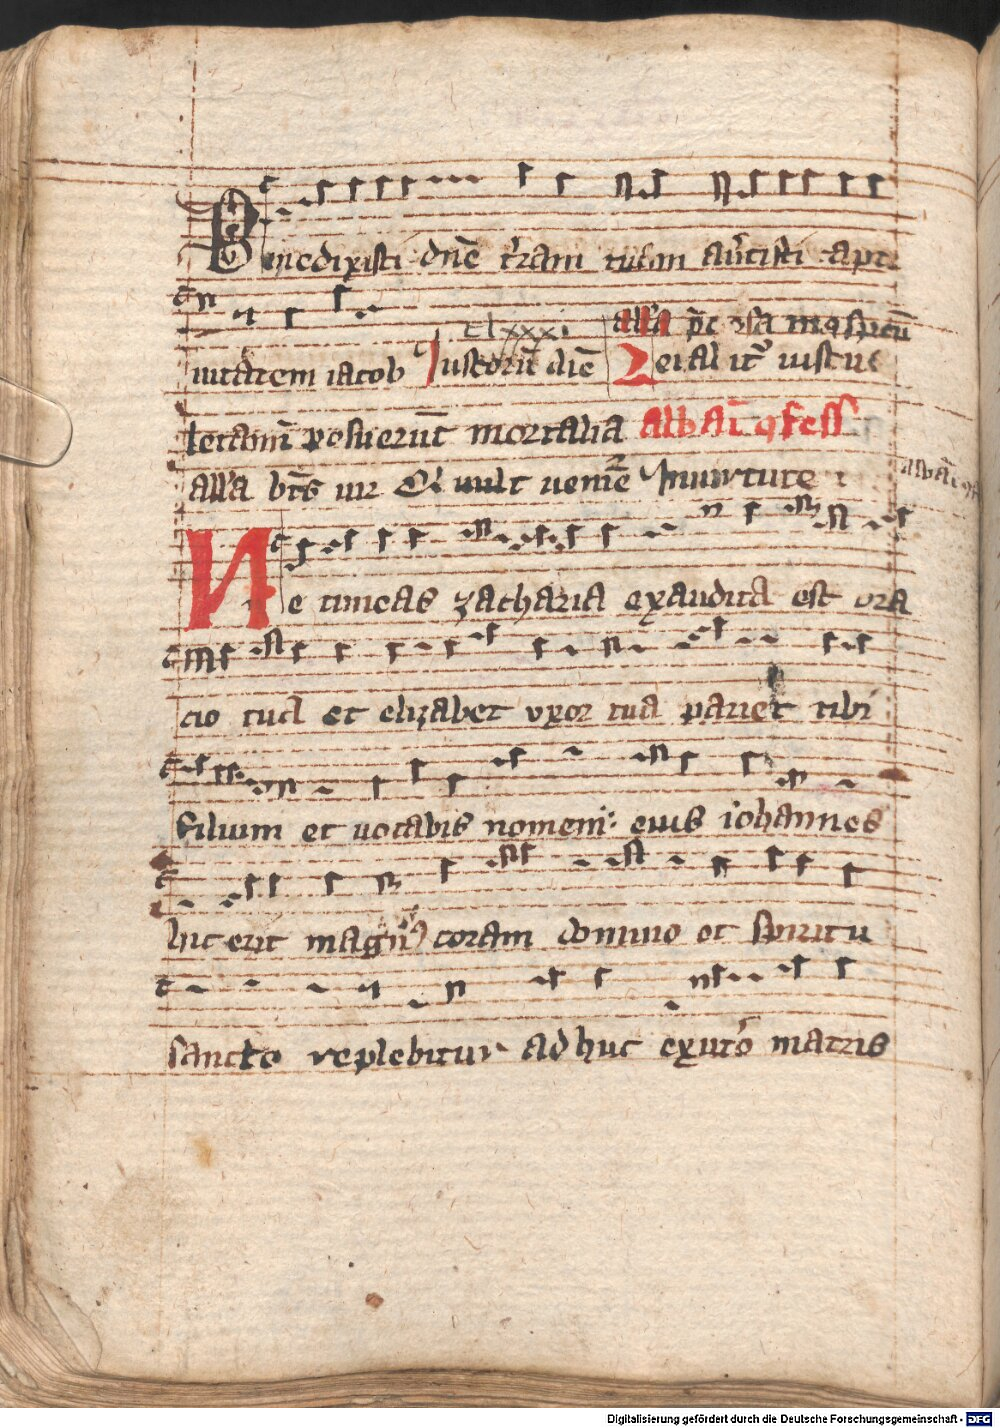 Benedixisti dne tram tuam aũtisti capt
clxxxi alla
iuitatem iacob Justorũ die Zeial it iustue
letabim posuerũt mortalia albani ꝯfess
alla bts uir Qi uult uenire In uirtute
Ne timeas zacharia exaudita est ora
cio tua et elizabet vxor tua pariet tibi
filium et uocabis nomen eius iohannes
hic erit magnꝰ coram domino et spiritu
sancto replebitur adhuc ex utero matris
Digitalisierung gefördert durch die Deutsche Forschungsgemeinschaft - DFG